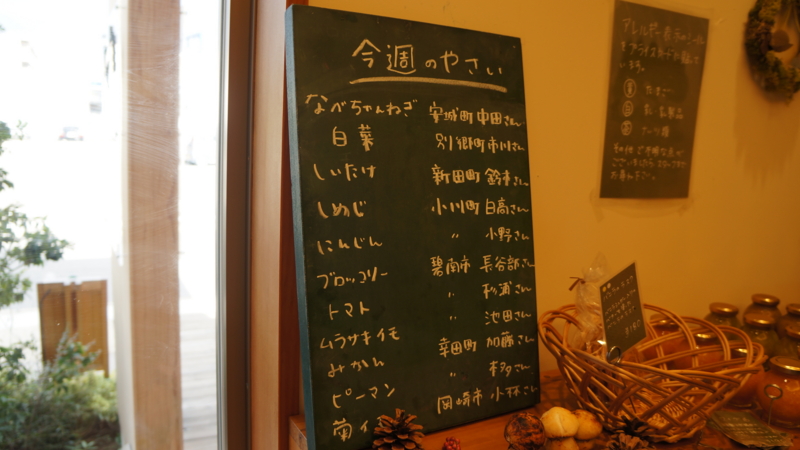 今週のやさい
なべちゃんねぎ 安城町 中田さん
白菜 別郷町 市川さん
しいたけ 新田町 鈴木さん
しめじ 小川町 日高さん
にんじん 〃 小野さん
ブロッコリー 碧南市 長谷部さん
トマト 〃 杉浦さん
ムラサキイモ 〃 池田さん
みかん 幸田町 加藤さん
ピーマン 〃 本多さん
菊イ 岡崎市 小林さん
アレルギー表示のシール
をプライスカードに貼って
います。
たまご
乳・乳製品
ナッツ類
お尋ね下さい。